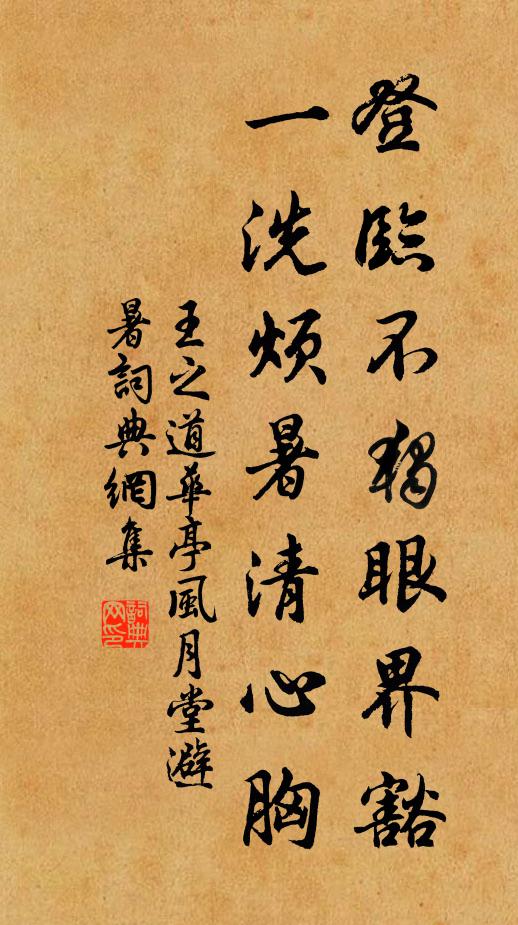 登臨不獨眼界豁
一洗煩暑清心胸
王之道華亭風月堂避
暑詞典網集
詞典網印